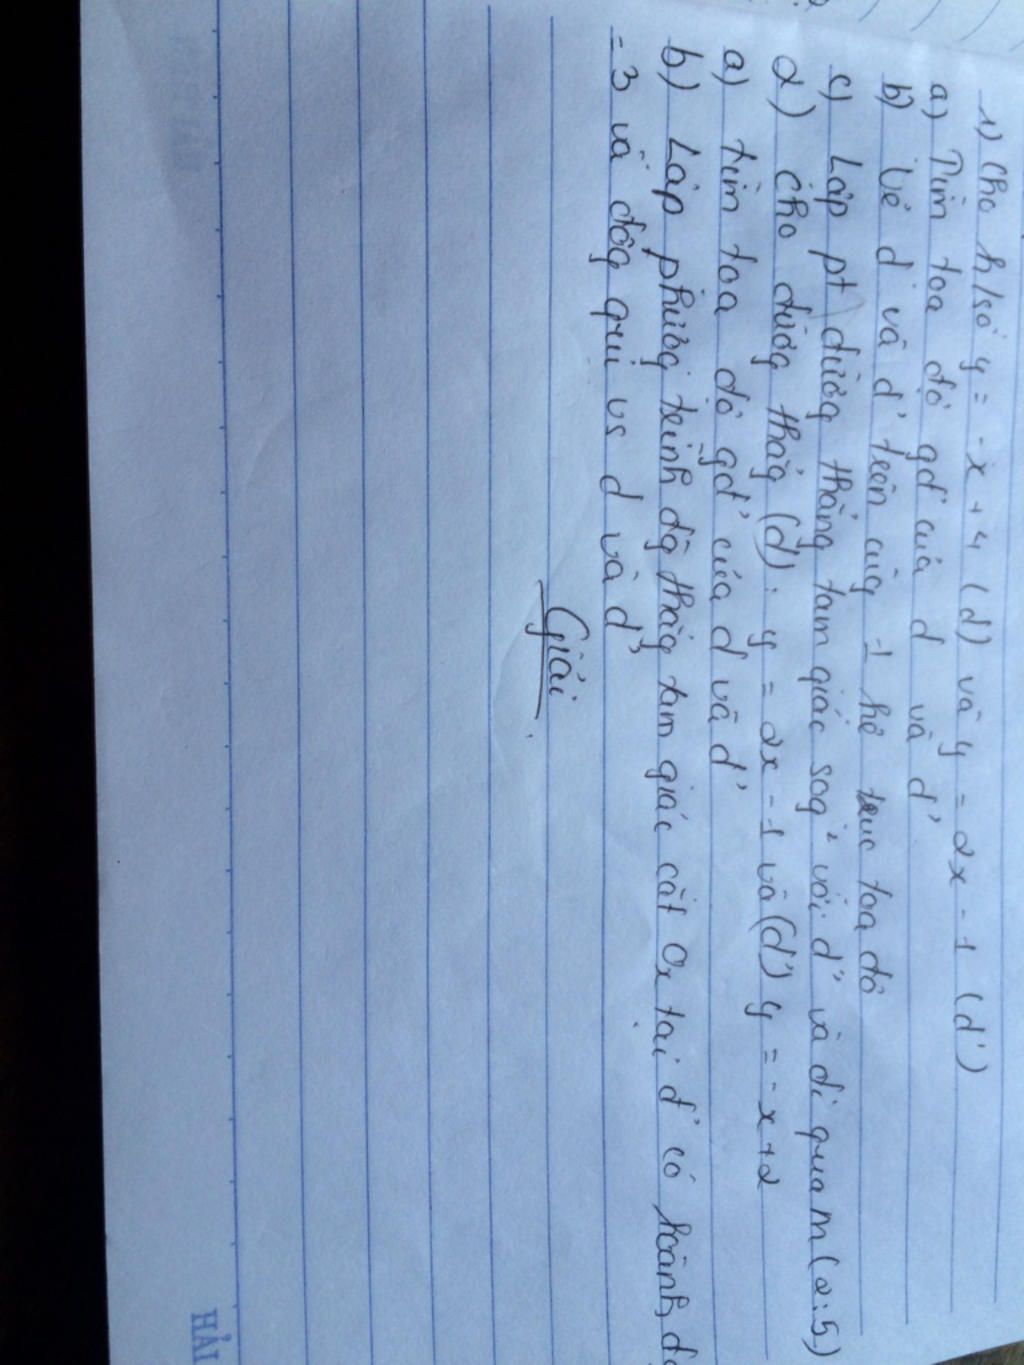 1) Cho h/số y = -x + 4 (d) và y = 2x - 1 (d')
a) Tìm toạ độ gđ' của d và d'
b) Vẽ d và d' trên cùg 1 hệ trục toạ độ
c) Lập pt đườg thẳng tam giác sog² với d' và đi qua M (2:5)
2) Cho đườg thẳg (d): y = 2x - 1 và (d') y = -x + 2
a) tìm toạ độ gđ' của d và d'
b) Lập phươg trình đg thẳg tam giác cắt Ox tại đ' có hoành
= 3 và đồg qui vs d và d'
Giải
HẢI